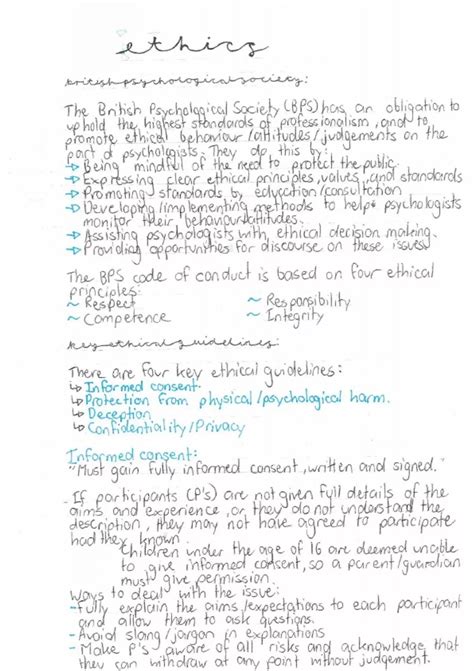 ethics
british psychological society:
The British Psychological Society (BPS) has an obligation to
uphold the highest standards of professionalism, and to
promote ethical behaviour/attitudes/judgements on the
part of psychologists. They do this by:
→ Being mindful of the need to protect the public.
→ Expressing clear ethical principles, values, and standards
→ Promoting standards by education/consultation
→ Developing/implementing methods to help psychologists
monitor their behaviour/attitudes.
→ Assisting psychologists with ethical decision making.
→ Providing opportunities for discourse on these issues
The BPS code of conduct is based on four ethical
principles:
~ Respect ~ Responsibility
~ Competence ~ Integrity
key ethical guidelines:
There are four key ethical guidelines:
↳ Informed consent.
↳ Protection from physical/psychological harm.
↳ Deception
↳ Confidentiality/Privacy
Informed consent:
"Must gain fully informed consent, written and signed."
- If participants (P's) are not given full details of the
aims and experience, or they do not understand the
description, they may not have agreed to participate
had they known.
Children under the age of 16 are deemed unable
to give informed consent, so a parent/guardian
must give permission.
Ways to deal with the issue:
- Fully explain the aims/expectations to each participant
and allow them to ask questions.
- Avoid slang/jargon in explanations
- Make P's aware of all risks and acknowledge that
they can withdraw at any point without judgement.